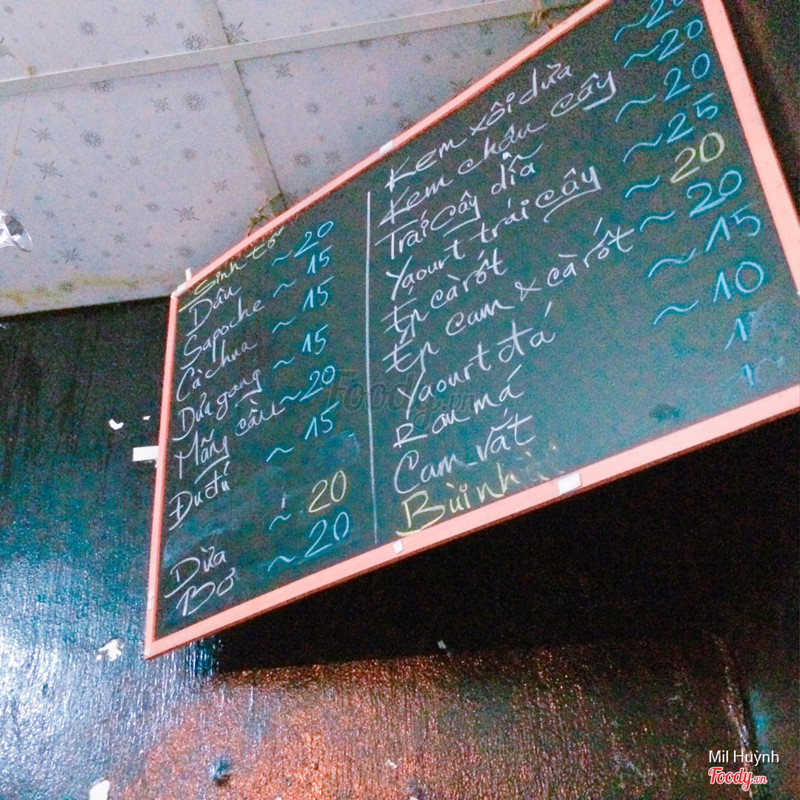 Sinh tố
Dâu ~ 20
Sapoche ~ 15
Cà chua ~ 15
Dưa gang ~ 15
Mãng cầu ~ 20
Đu đủ ~ 15
Dừa ~ 20
Bơ ~ 20
Kem xôi dừa ~ 20
Kem chấu cây ~ 20
Trái cây dĩa ~ 20
Yaourt trái cây ~ 25
Ép cà rốt ~ 20
Ép cam & cà rốt ~ 20
Yaourt đá ~ 15
Rau má ~ 10
Cam vắt
Foody.vn
Mil Huỳnh
Foody.vn